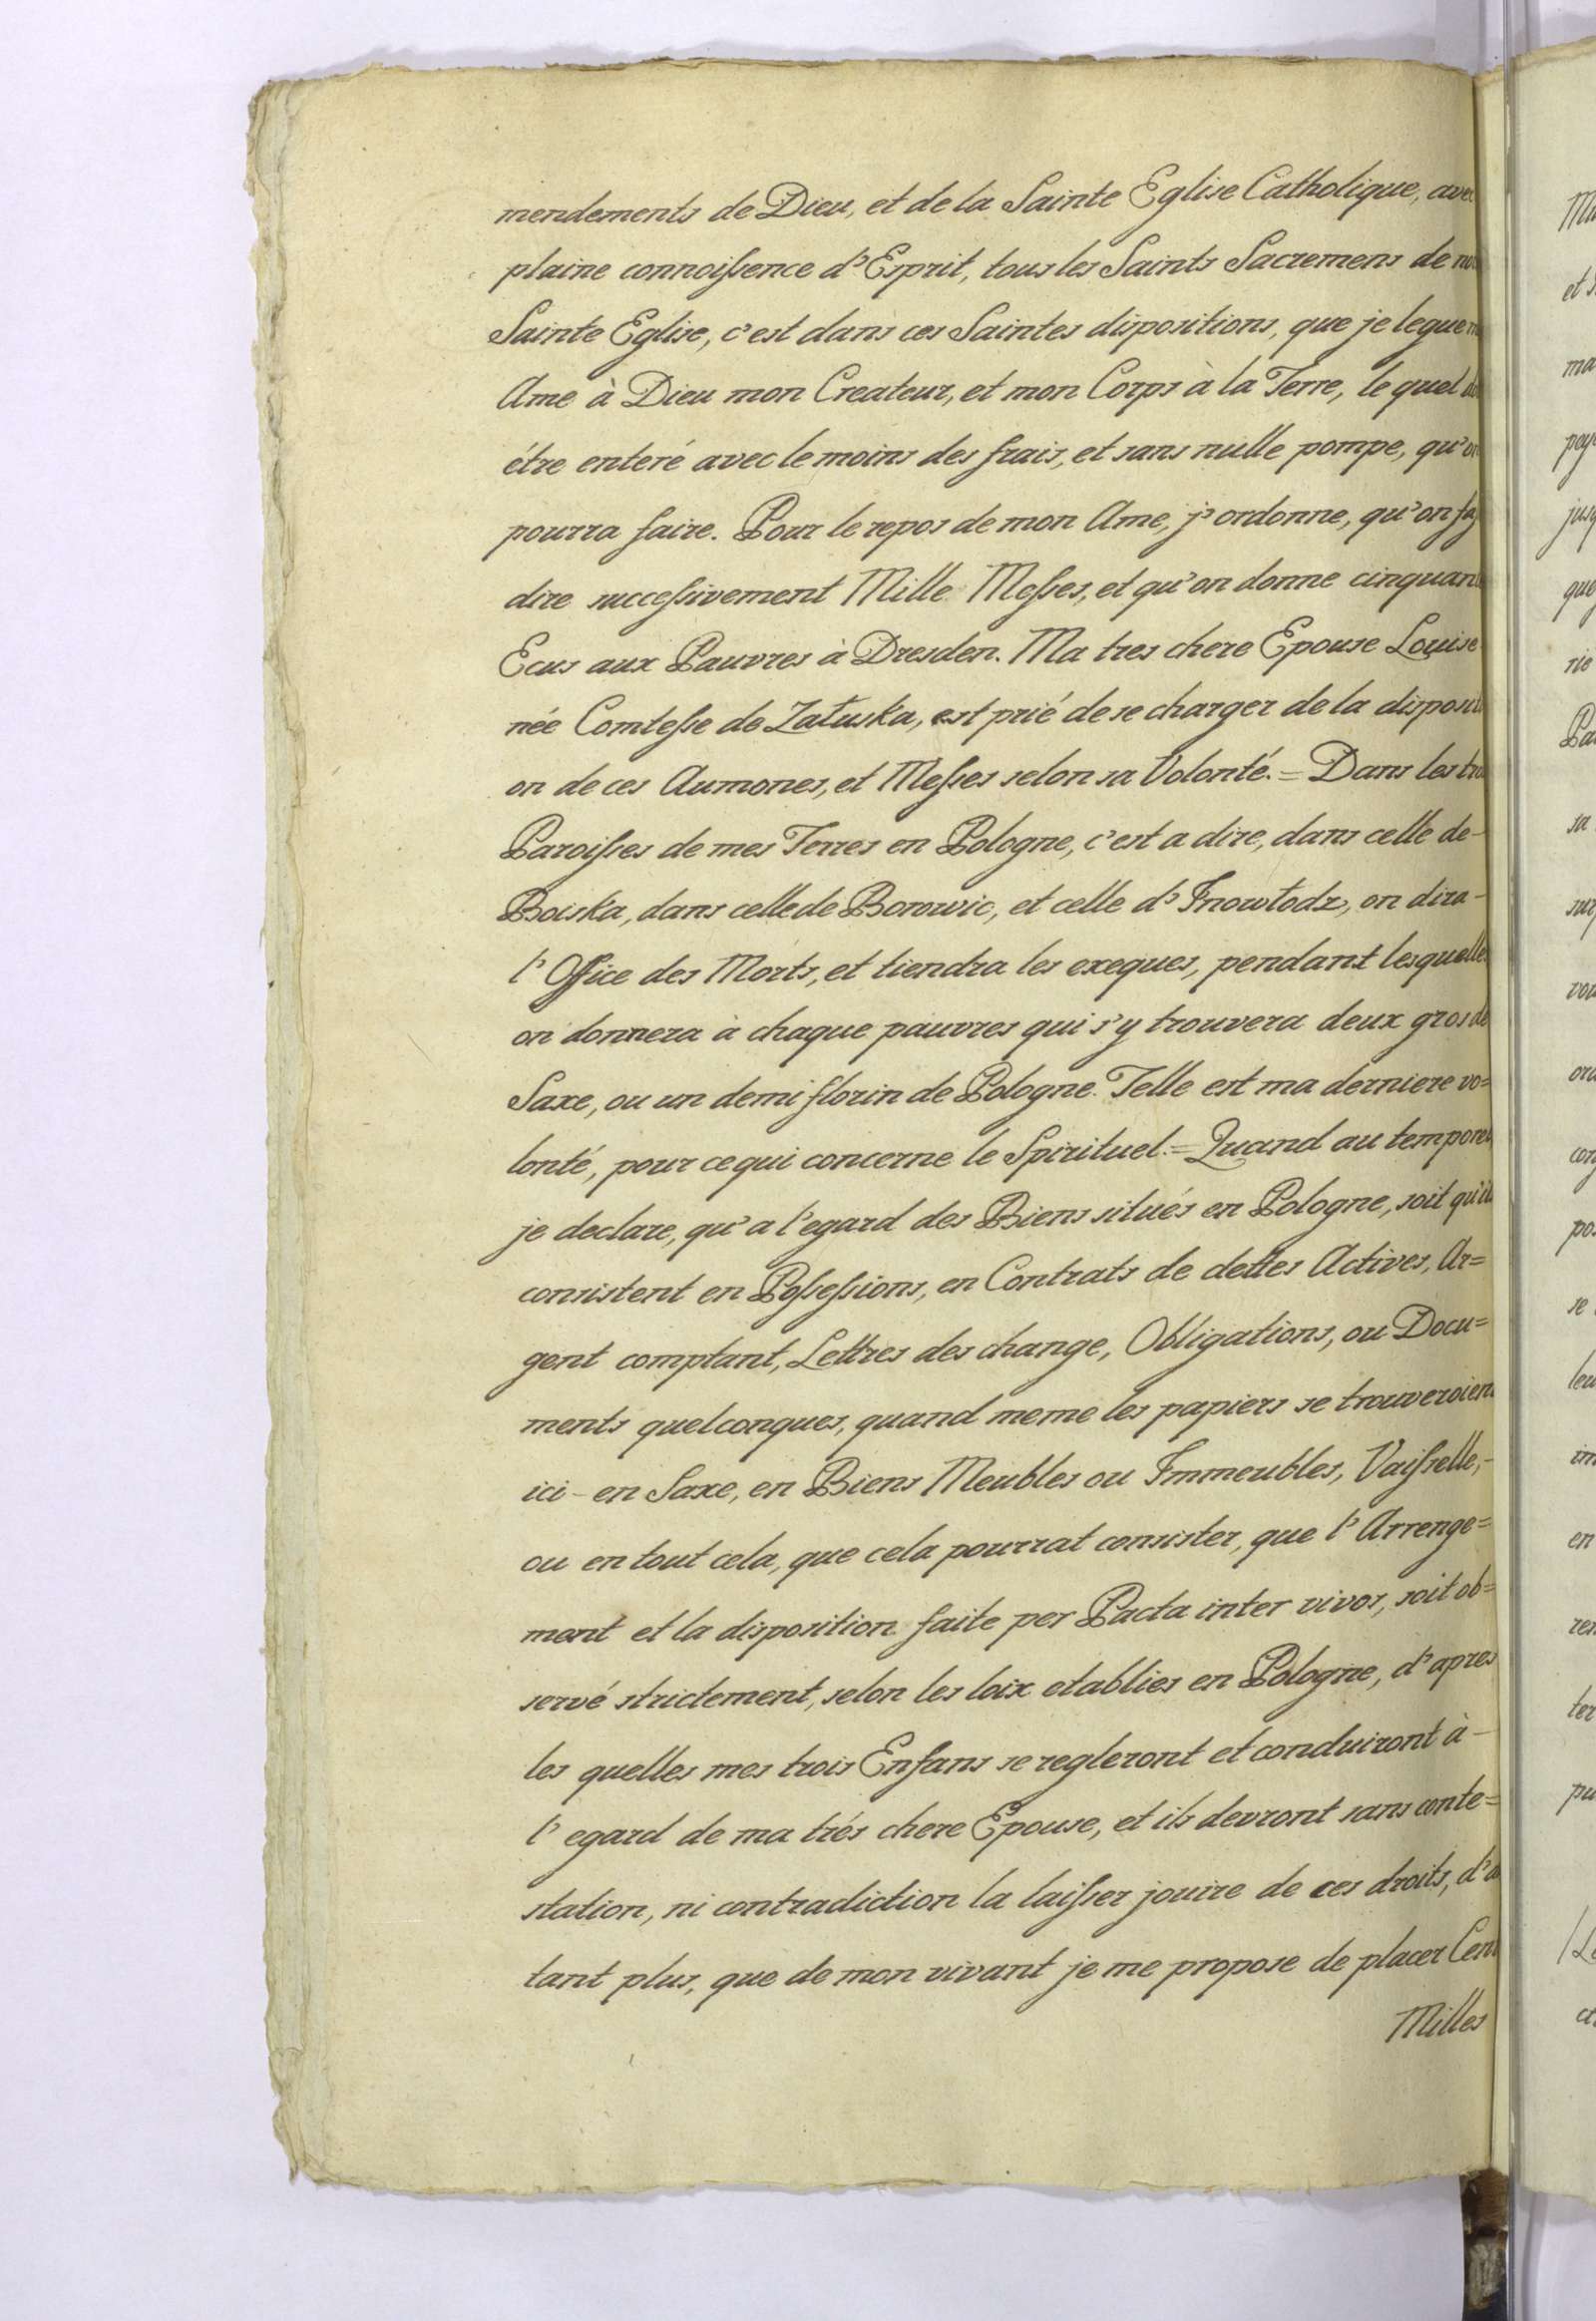 mendements de Dieu, et de la Sainte Eglise Catholique, avec
plaine connoißence d'Esprit, tous les Saints Sacremens de
Sainte Eglise, c'est dans ces Saintes dispositions, que je legue
Ame à Dieu mon Createur, et mon Corps à la Terre, le quel
étre enteré avec le moins des frais, et sans nulle pompe, qu'on
pourra faire. Pour le repos de mon Ame, j'ordonne, qu'on
dire succeßivement Mille Meßes, et qu'on donne cinquan
Ecus aux Pauvres à Dresden. Ma tres chere Epouse Louise
née Comteße de Załuska, est prié de se charger de la dispositi
on de ces Aumones, et Meßes selon sa Volonté. = Dans les
Paroißes de mes Terres en Pologne, c'est a dire, dans celle de-
Boiska, dans celle de Borowic, et celle d'Inowłodz, on dira-
l'Office des Morts, et tiendra les exeques, pendant lesquelles
on donnera à chaque pauvres qui s'y trouvera deux gros de
Saxe, ou un demi florin de Pologne. Telle est ma derniere vo=
lonté, pour ce qui concerne le Spirituel. = Quand au temporel
je declare, qu'a l'egard des Biens situés en Pologne, soit qu'il
consistent en Poßeßions, en Contrats de dettes Actives, Ar=
gent comptant, Lettres des change, Obligations, ou Docu=
ments quelconques, quand meme les papiers se trouveroient
ici-en Saxe, en Biens Meubles ou Immeubles, Vaißelle,-
ou en tout cela, que cela pourrat consister, que l'Arrenge=
ment et la disposition faite per Pacta inter vivos, soit ob=
servé strictement, selon les loix etablies en Pologne, d'apres
les quelles mes trois Enfans se regleront et conduiront à-
l'egard de ma trés chere Epouse, et ils devront sans conte=
station, ni contradiction la laißer jouire de ces droits,
tant plus, que de mon vivant je me propose de placer Cent
Milles